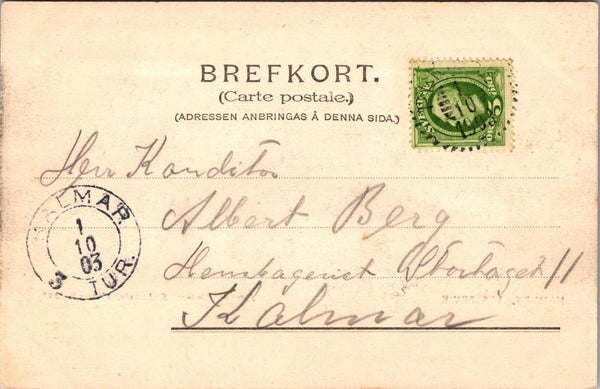 BREFKORT.
(Carte postale.)
(ADRESSEN ANBRINGAS Å DENNA SIDA.)
Herr Konditor
Albert Berg
Hembageriet Stortoget 11
Kalmar
KALMAR
1
10
03
3 TUR.
1
10